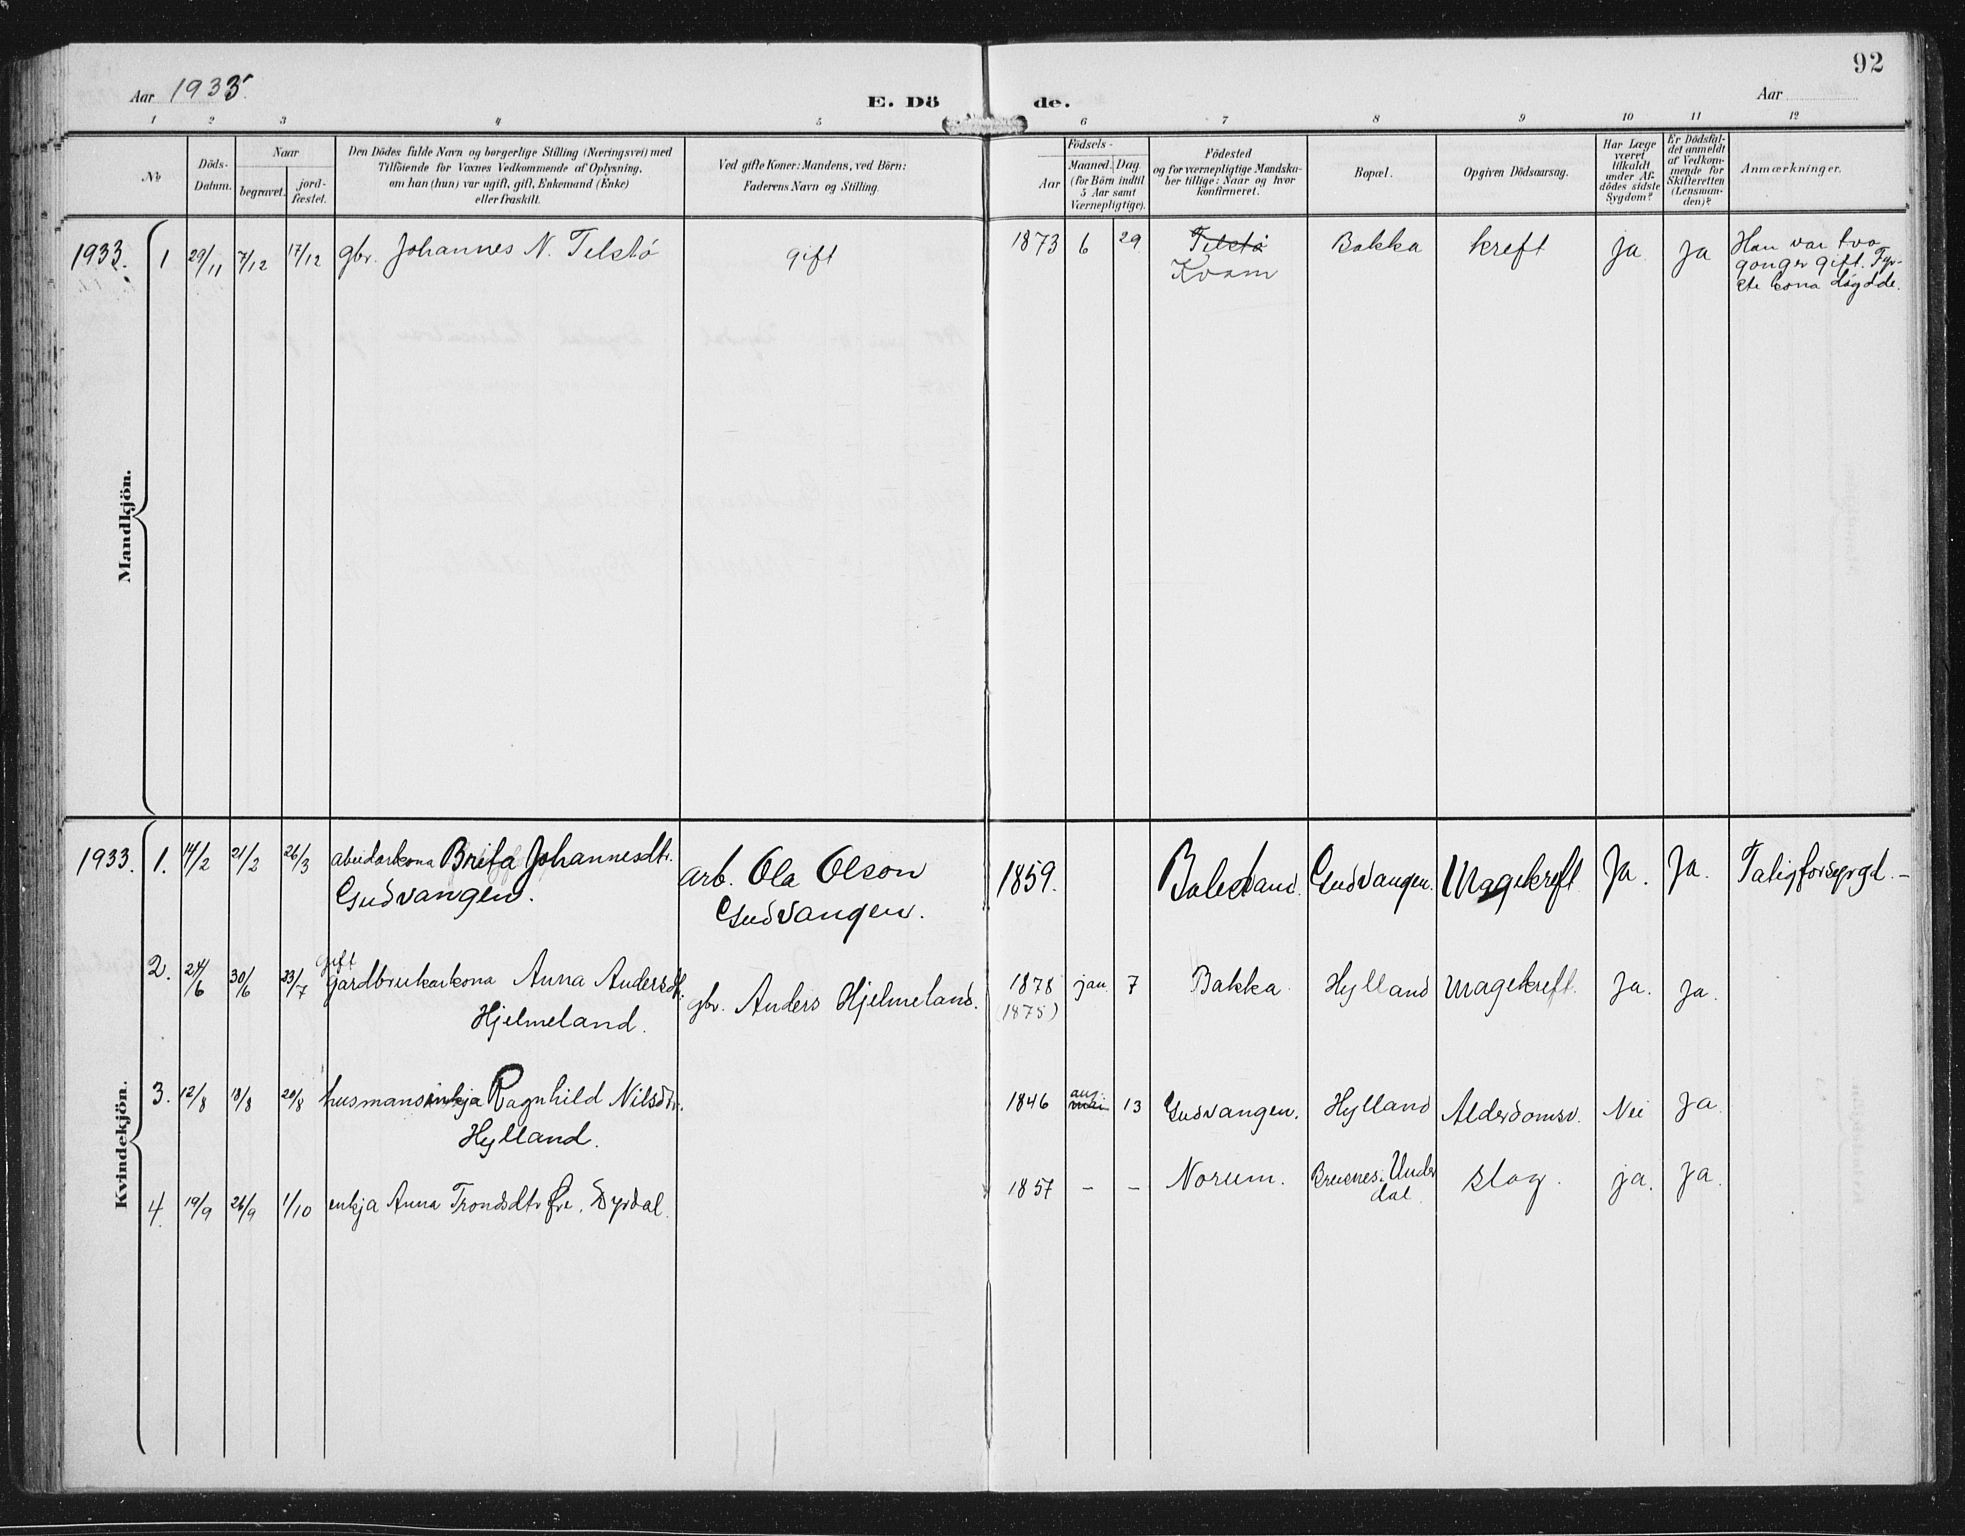 92
Aar 1933.
E. Dö de.
Aar
1 2 3 4 5 6 7 8 9 10 11 12
№
Döds-
Datum.
Naar
begravet.
jord-
fæstet.
Den Dödes fulde Navn og borgerlige Stilling (Næringsvei) med
Tilföiende for Voxnes Vedkommende af Oplysning,
om han (hun) var ugift, gift, Enkemand (Enke)
eller fraskilt.
Ved gifte Koner: Mandens, ved Börn:
Faderens Navn og Stilling.
Födsels-
Aar
Maaned. Dag
(for Börn indtil
5 Aar samt
Værnepligtige).
Födested
og for værnepligtige Mandska-
ber tillige: Naar og hvor
konfirmeret.
Bopæl.
Opgiven Dödsaarsag.
Har Læge
været
tilkaldt
under Af-
dödes sidste
Sygdom?
Er Dödsfal-
det anmeldt
af Vedkom-
mende for
Skifteretten
(Lensman-
den)?
Anmærkninger.
Mandkjön.
1933. 1 29/11 7/12 17/12 gbr. Johannes N. Telstö gift 1873 6 29 Telstö Bakka kreft ja ja Han var tvo
Kvam gonger gift. Fyr-
ste kona döydde.
Kvindekjön.
1933. 1. 14/2 21/2 26/3 abeidarkona Brita Johannesdtr. arb. Ola Olson 1859. Balestrand Gudvangen. Magekreft Ja. Ja.
Gudvangen. Gudvangen.
2. 24/6 30/6 23/7 gift
gardbrukarkona Anna Andersdtr. gbr. Anders Hjelmeland. 1878 jan. 7 Bakka. Hylland Magekreft. Ja. Ja.
Hjelmeland. (1875)
3. 12/8 18/8 20/8 husmansenkja Ragnhild Nilsdtr. 1846 aug. mai 13 Gudvangen. Hylland Alderdomsv. Nei Ja.
Hylland.
4. 19/9 26/9 1/10 enkja Anna Trondsdtr Øvr. Dyrdal. 1857 - - Norum. Undr
dal. slag. ja. Ja.